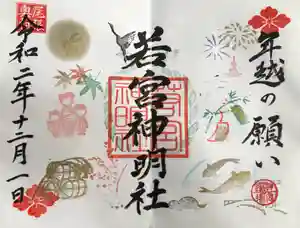 年越の願い
若宮神明社
若宮
神明社
令和二年十二月一日